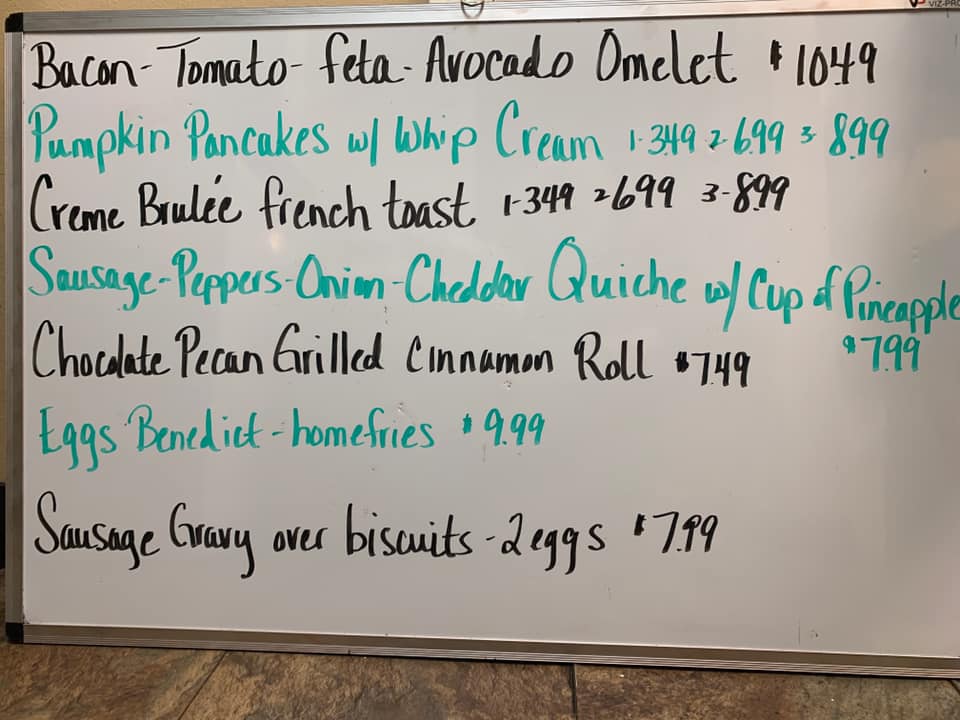 VIZ-PRO
Bacon-Tomato-feta-Avocado Omelet $1049
Pumpkin Pancakes w/ Whip Cream 1-349 2-6.99 3- 8.99
Creme Brulée french toast 1-349 2-699 3-899
Sausage-Peppers-Onion-Cheddar Quiche w/ Cup of Pineapple
$7.99
Chocolate Pecan Grilled Cinnamon Roll $7.49
Eggs Benedict-homefries $9.99
Sausage Gravy over biscuits-2eggs $7.99